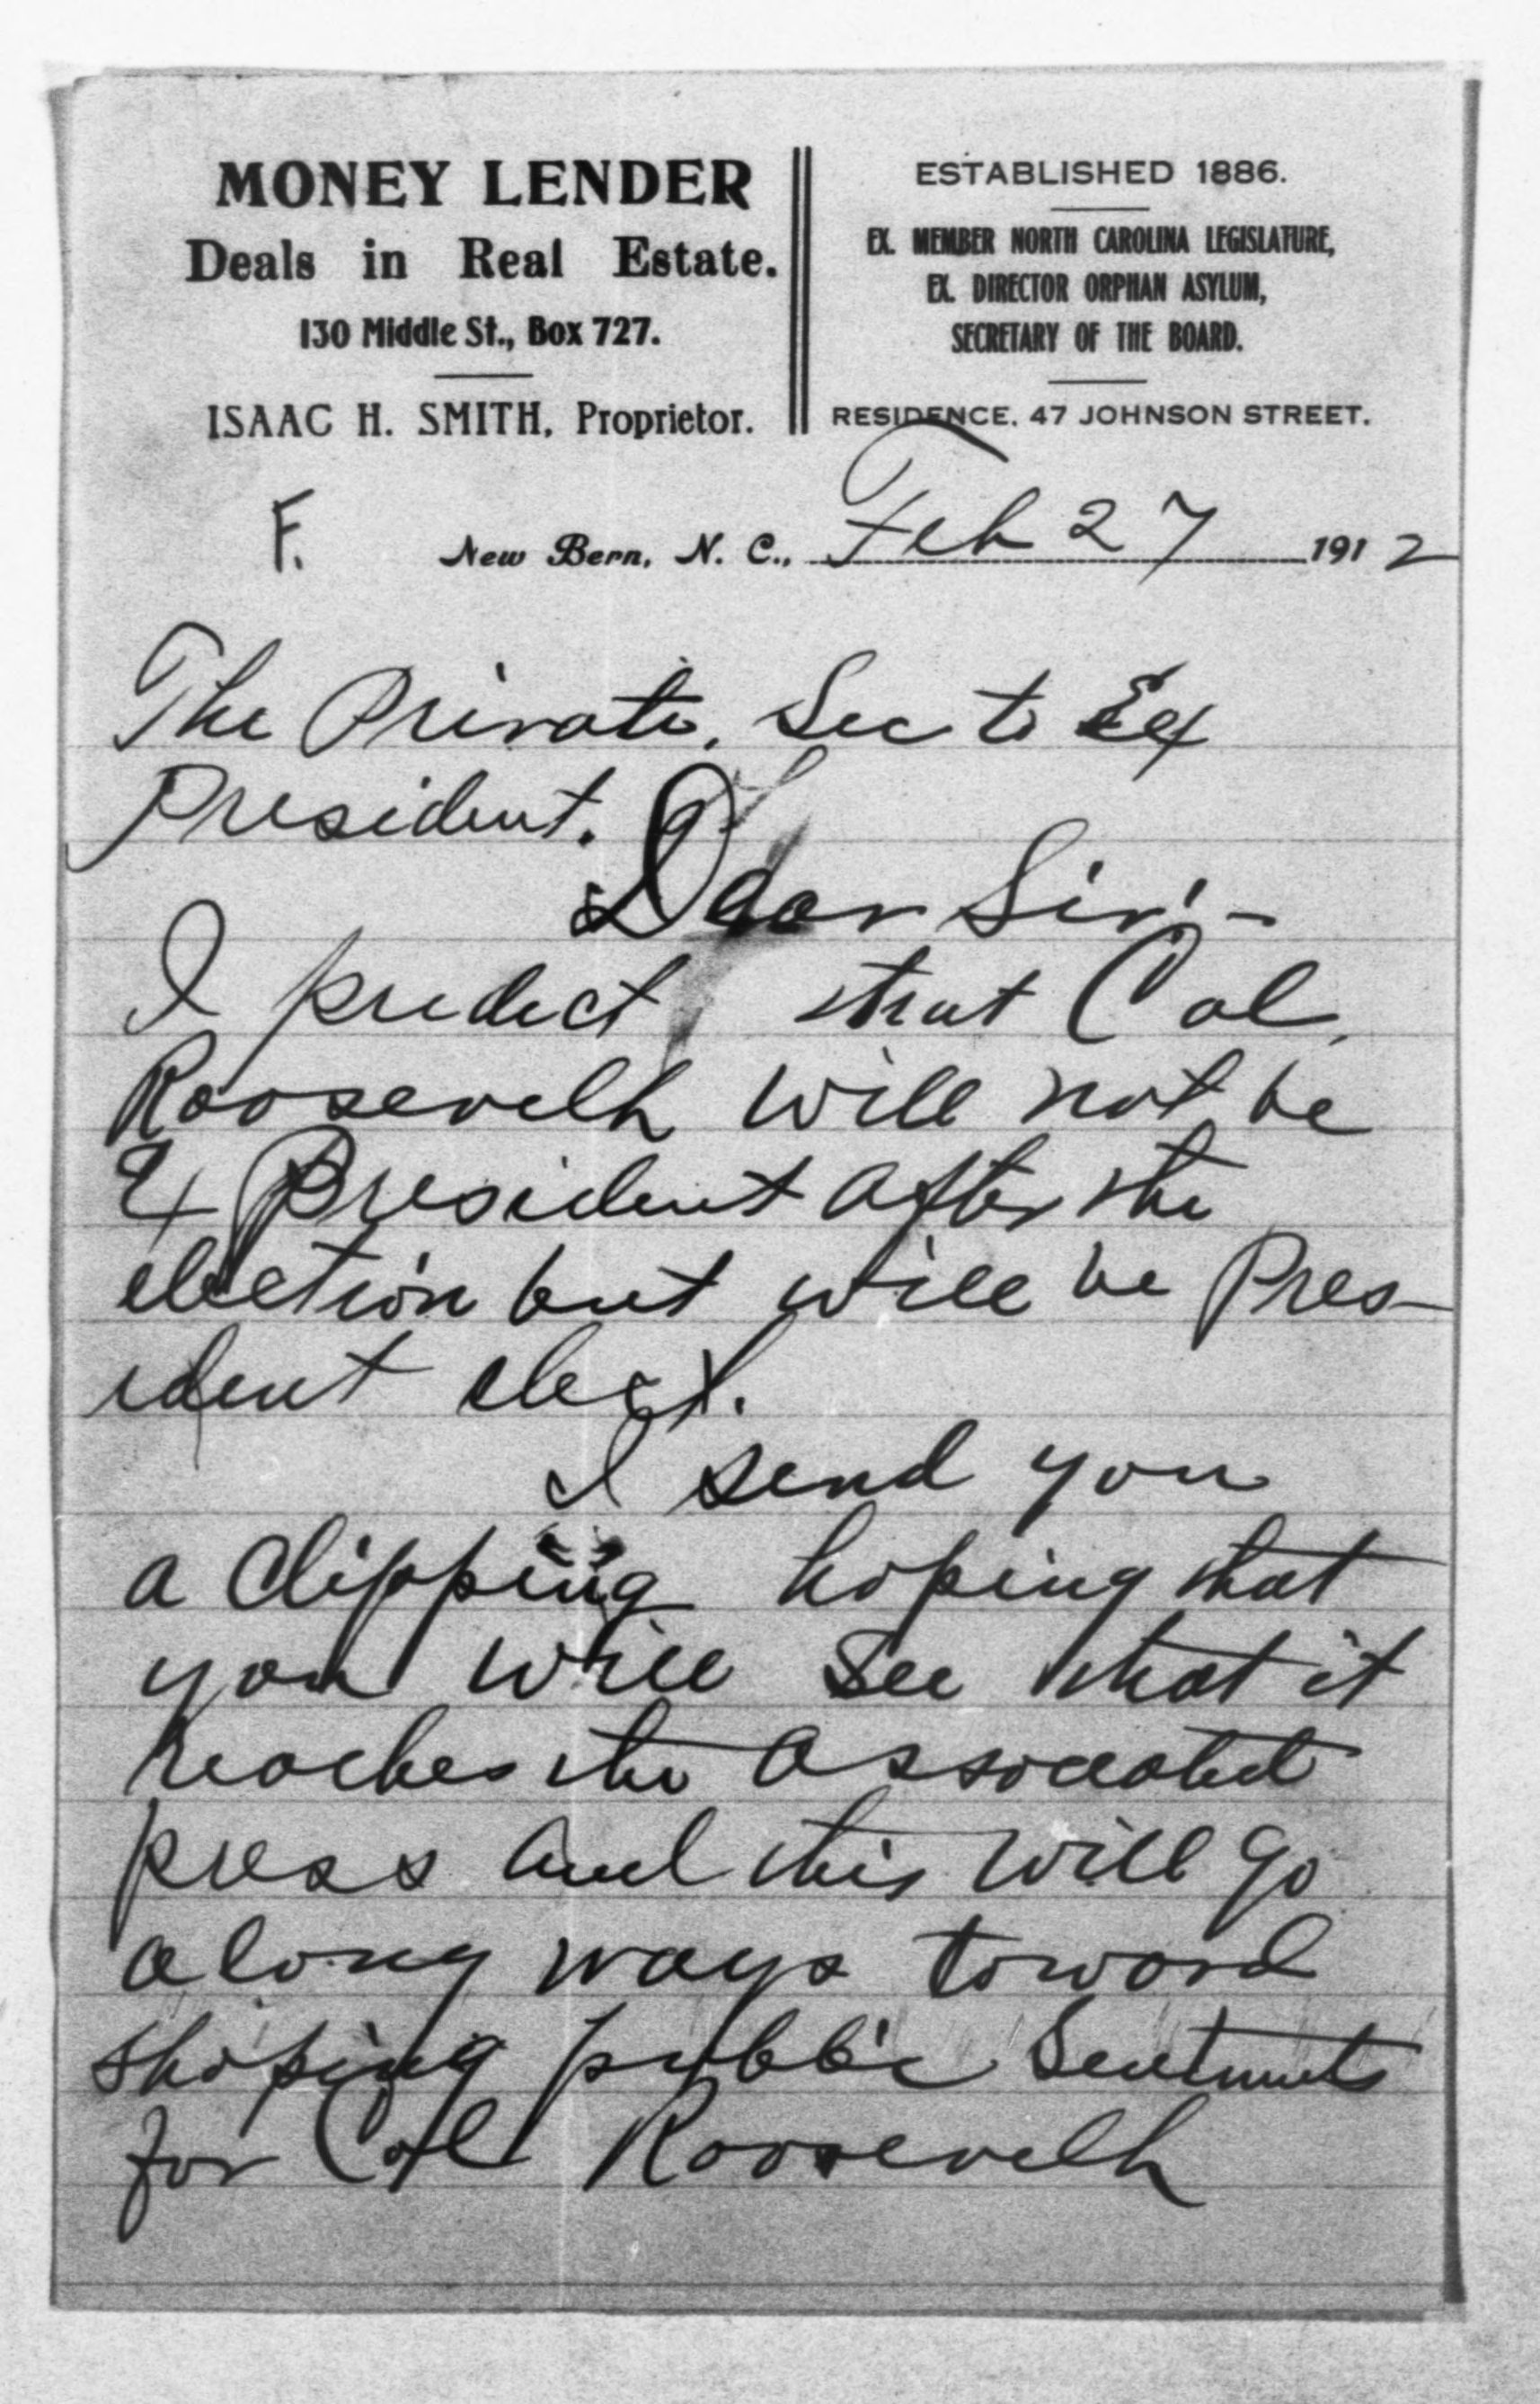 MONEY LENDER
Deals in Real Estate.
130 Middle St., Box 727.
ISAAC H. SMITH, Proprietor.
ESTABLISHED 1886.
EX. MEMBER NORTH CAROLINA LEGISLATURE,
EX. DIRECTOR ORPHAN ASYLUM,
SECRETARY OF THE BOARD.
RESIDENCE, 47 JOHNSON STREET.
F. New Bern, N. C., Feb 27 1912
The Private, Sec to Ex
President.
Dear Sir:-
I predict that Col.
Roosevelt will not be
Ex President after the
election but will be Pres-
ident elect.
I send you
a clipping hoping that
you will see that it
reaches the associated
press and this will go
a long ways toward
shaping public Sentiments
for Col Roosevelt